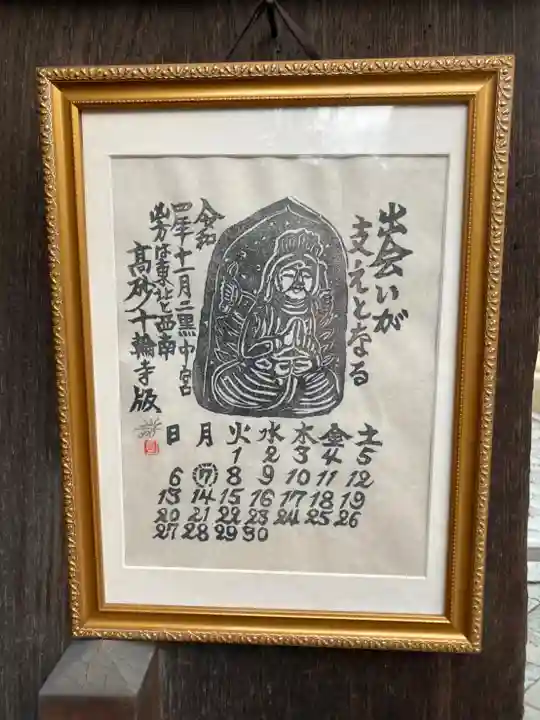 出会いが
支えとなる
令和
四年十一月二黒中宮
凶方は東北と西南
高砂十輪寺版
日 月 火 水 木 金 土
1 2 3 4 5
6 7 8 9 10 11 12
13 14 15 16 17 18 19
20 21 22 23 24 25 26
27 28 29 30